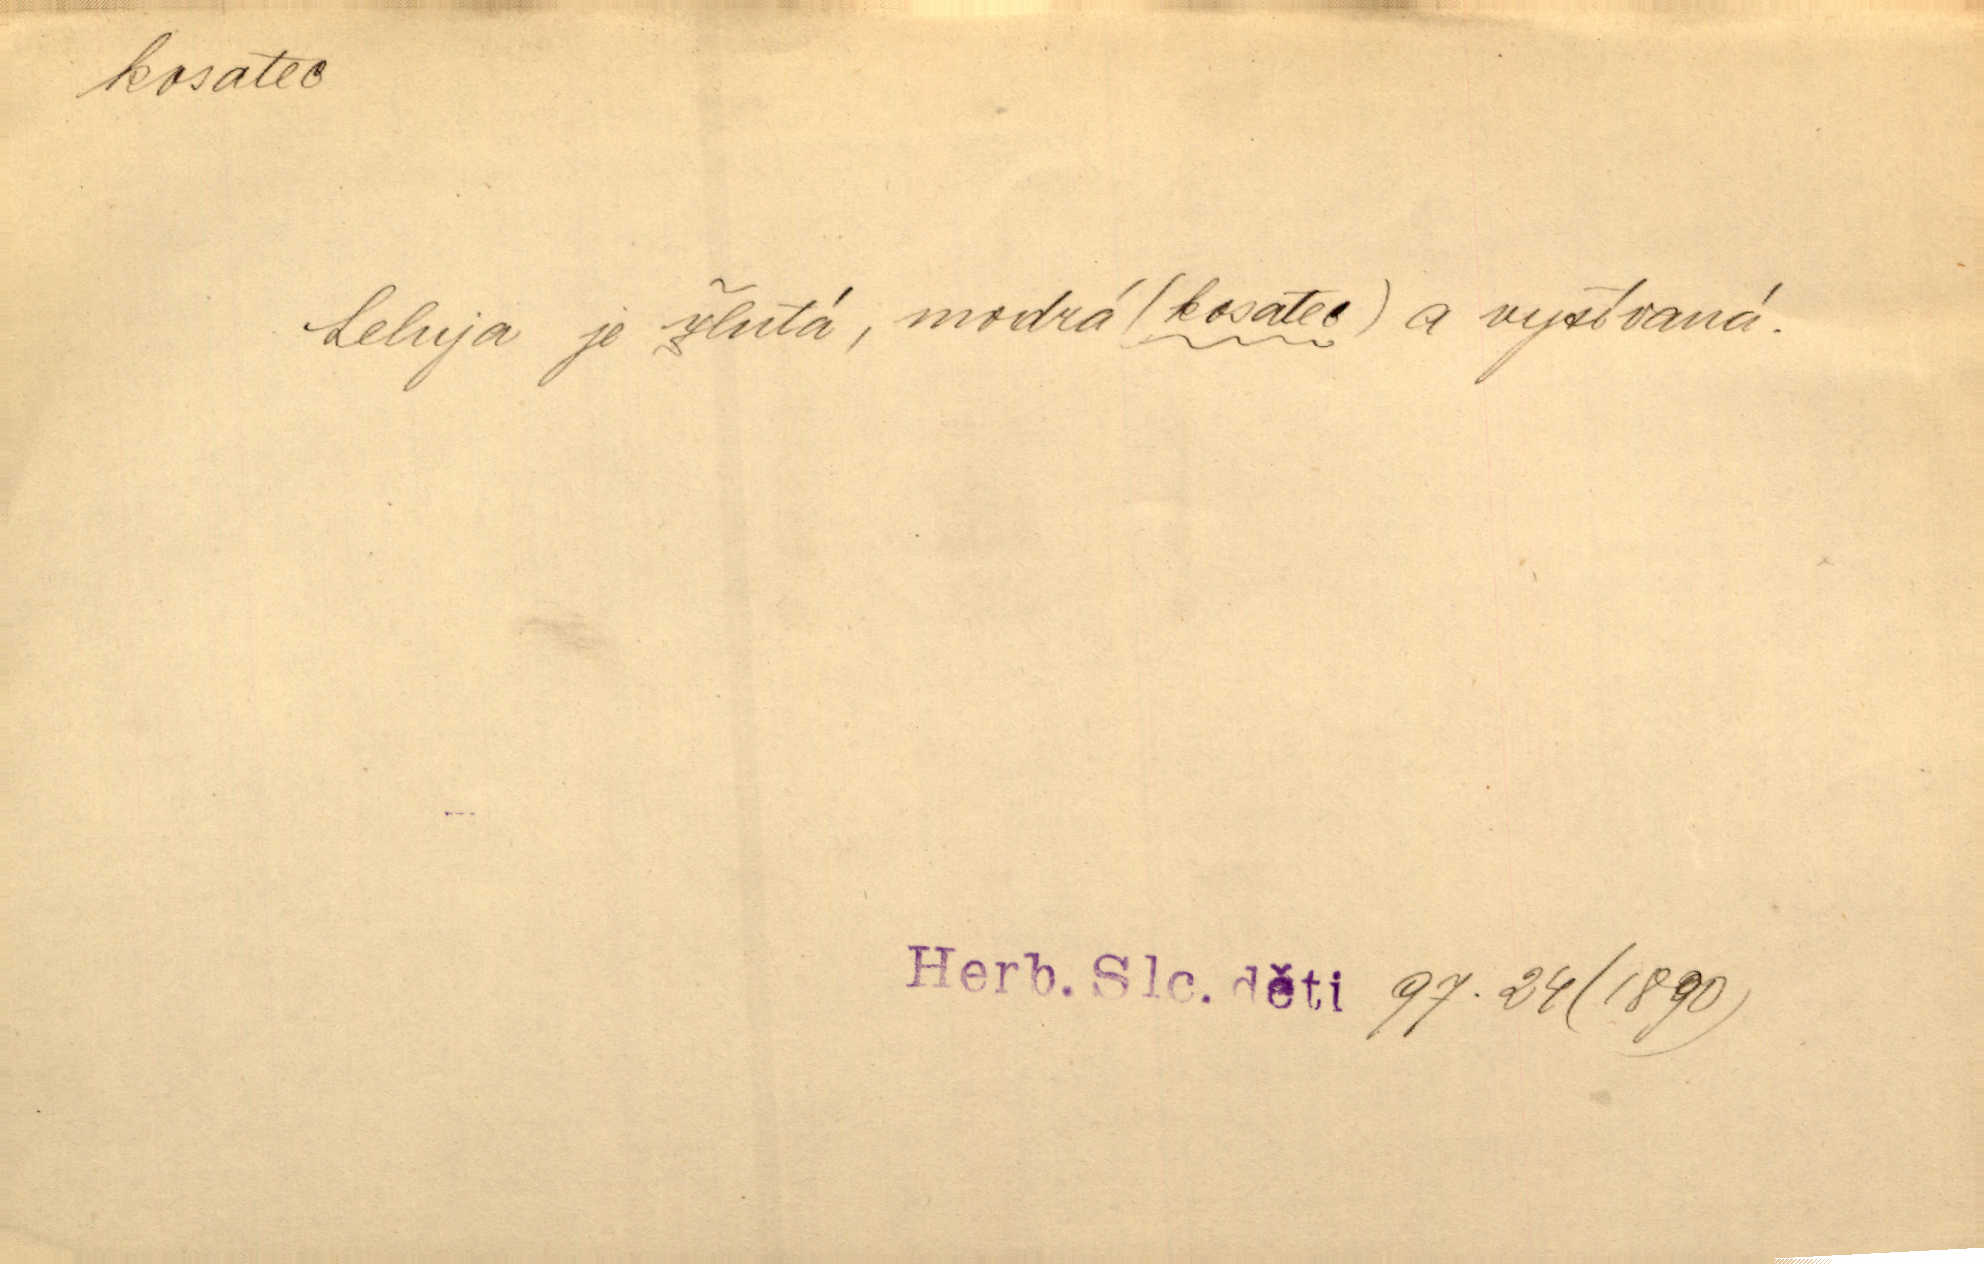 kosatec
Leluja je žlutá, modrá (kosatec) a vyšívaná.
Herb. Slc. děti 97. 24 (1890)